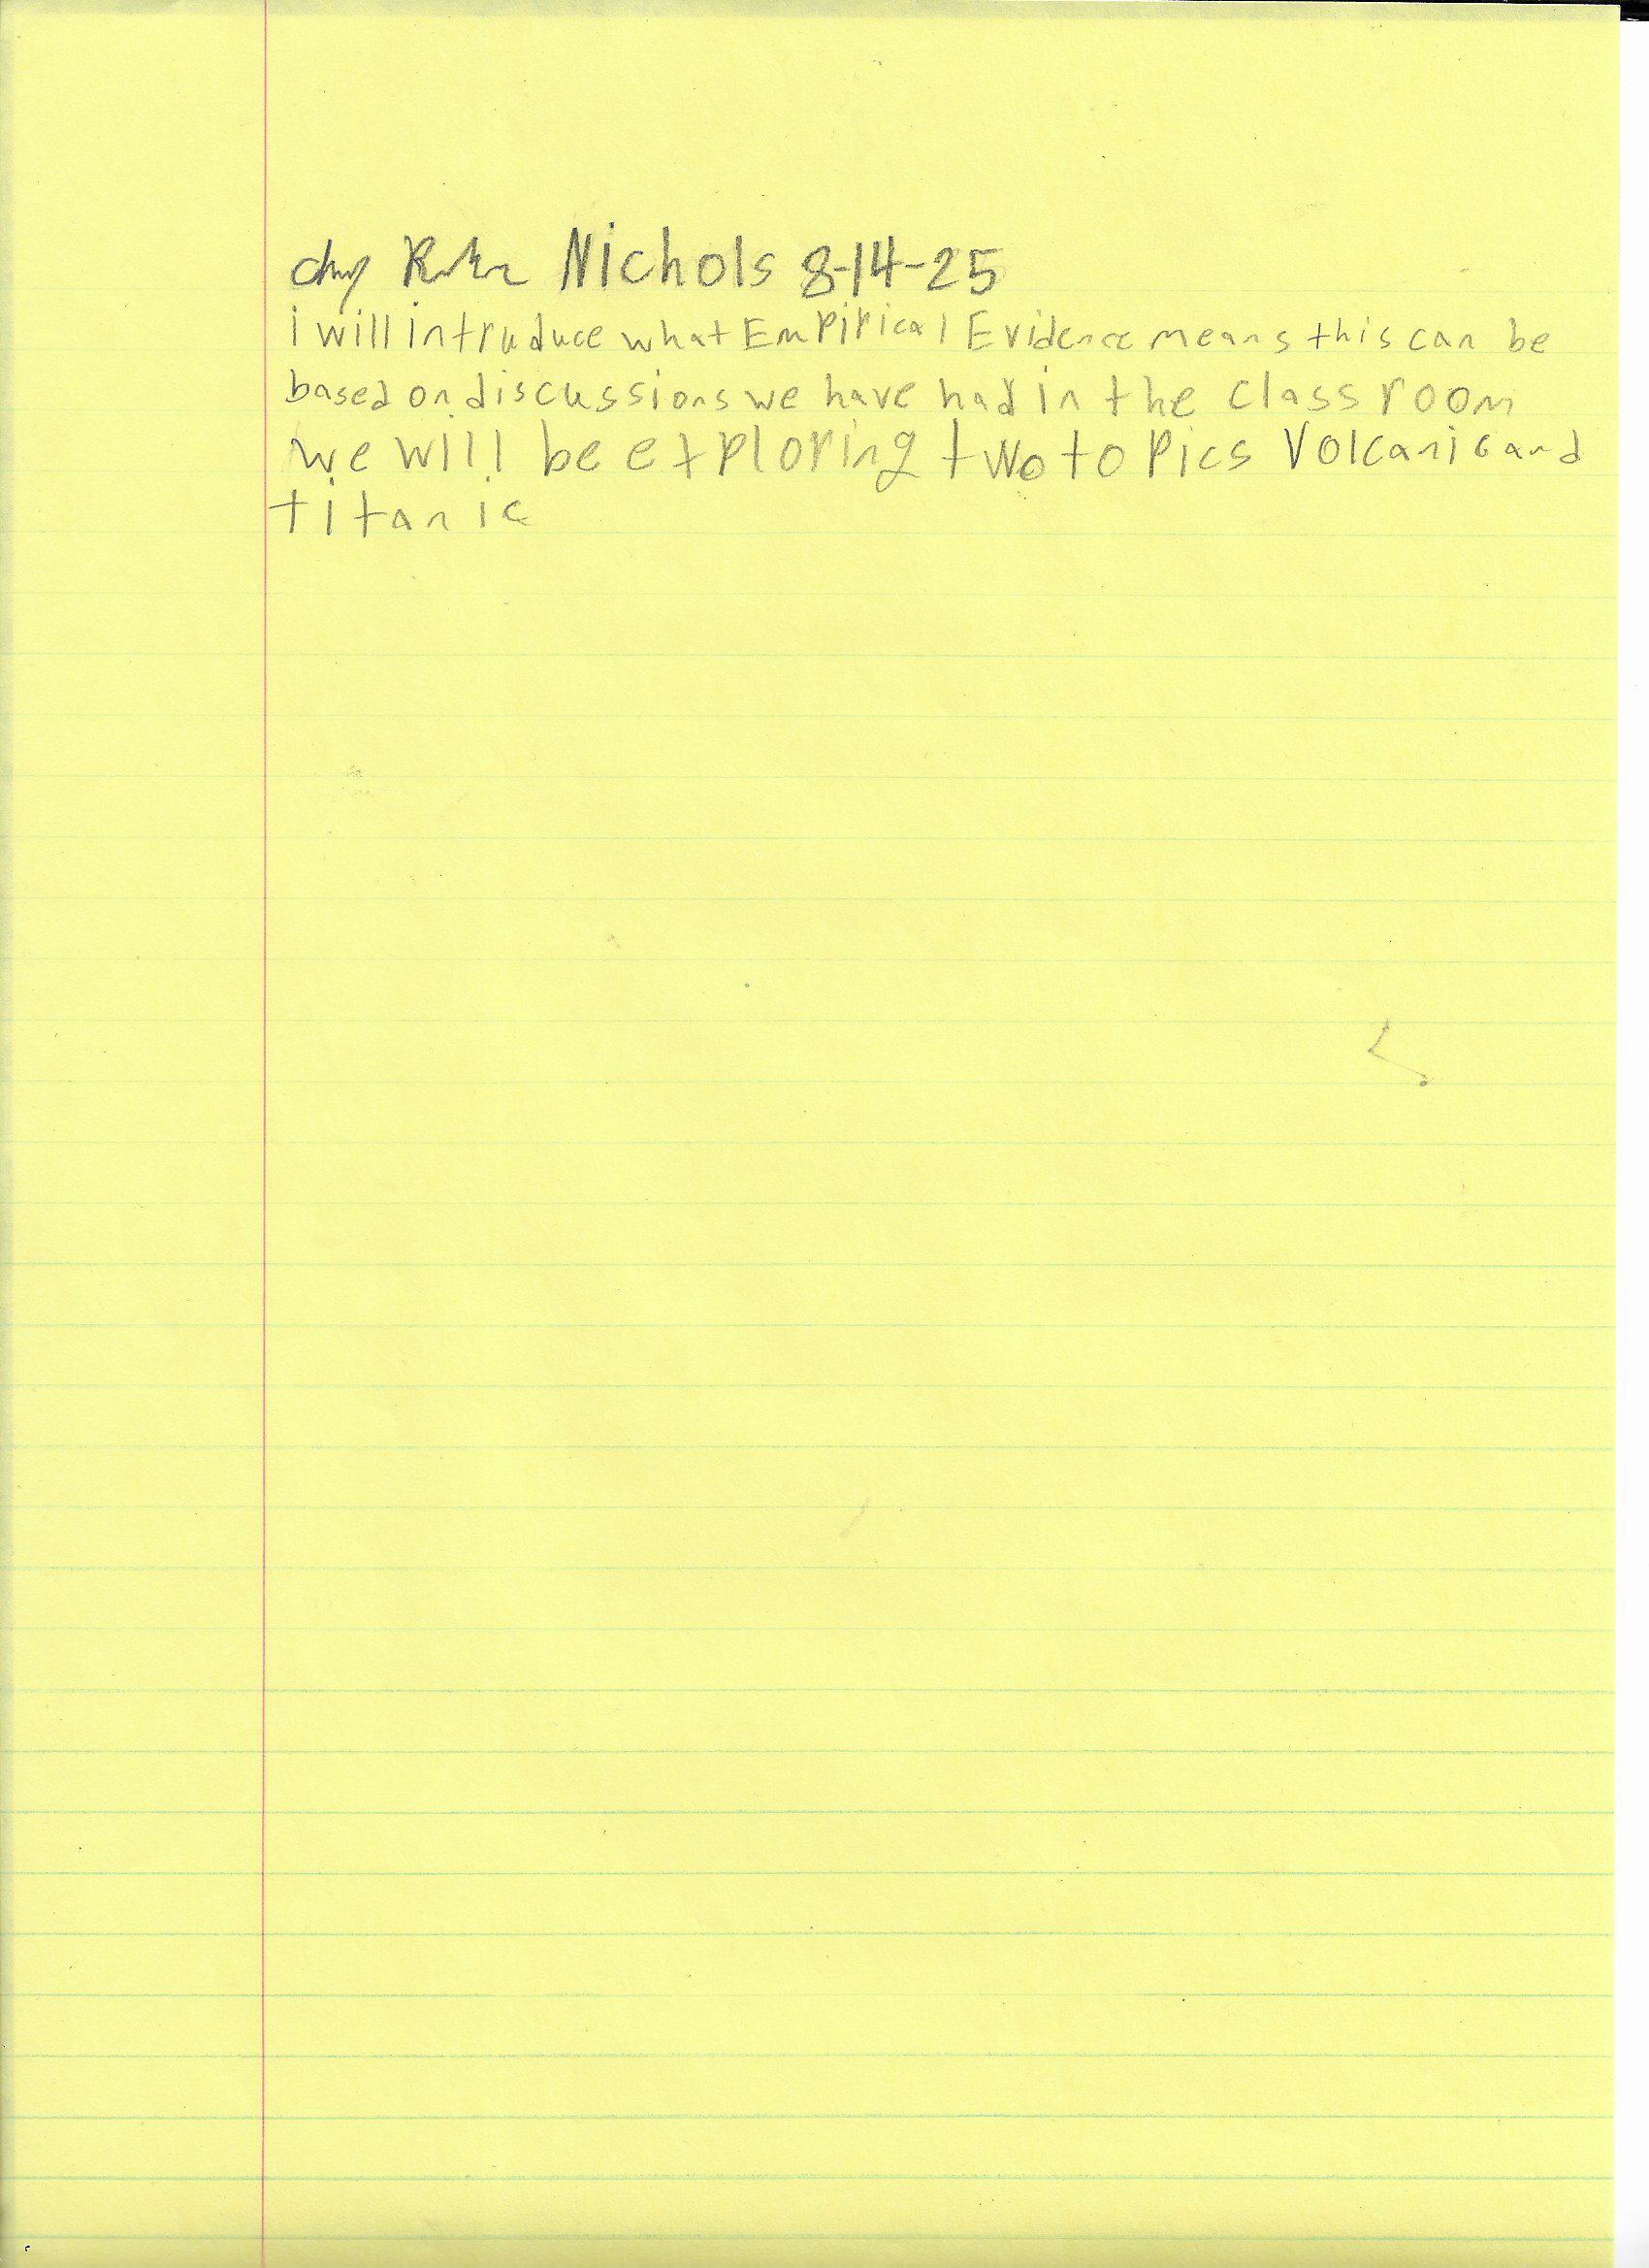 Nichols 8-14-25
i will intruduce what Empirical Evidence means this can be
based on discussions we have had in the class room
we will be exploring two topics Volcanic and
titanic